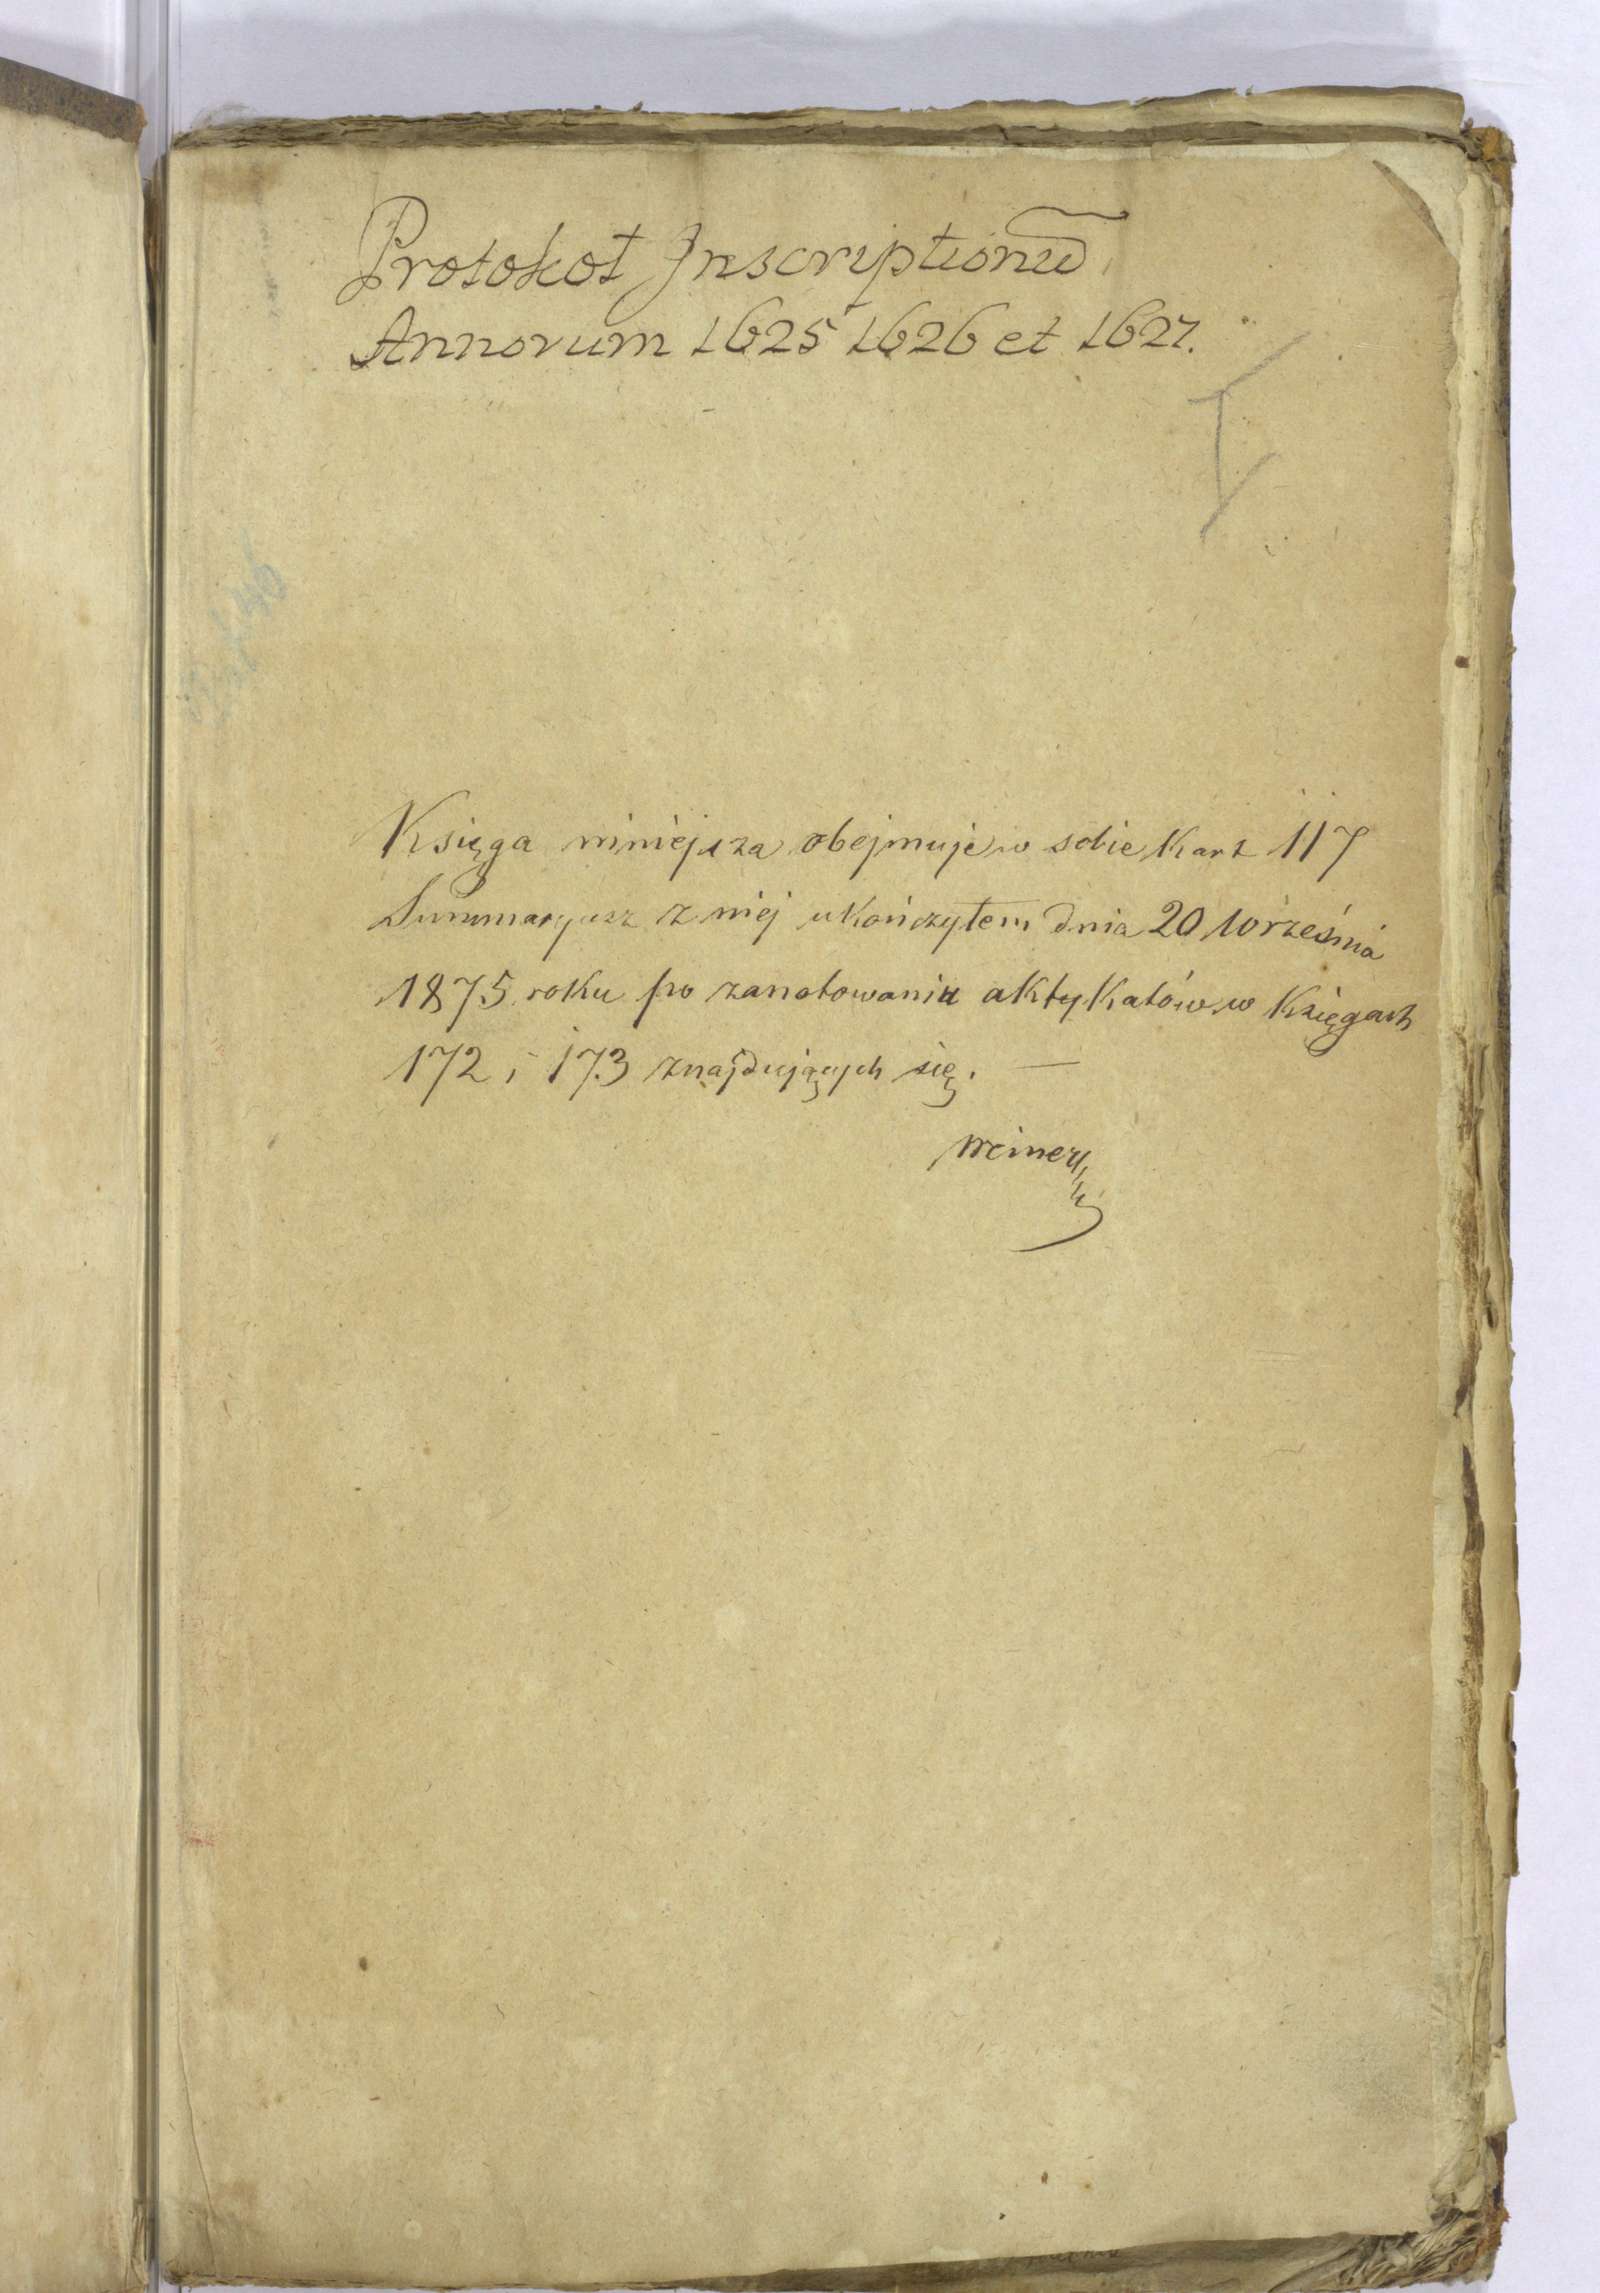 Protokoł Inscriptionū
Annorum 1625 1626 et 1627.
Księga niniejsza obejmuje w sobie kart 117
Summaryusz z niej ukończyłem dnia 20 września
1875 roku po zanotowaniu aktykatów w księgach
172 i 173 znajdujących się. —
Weiner